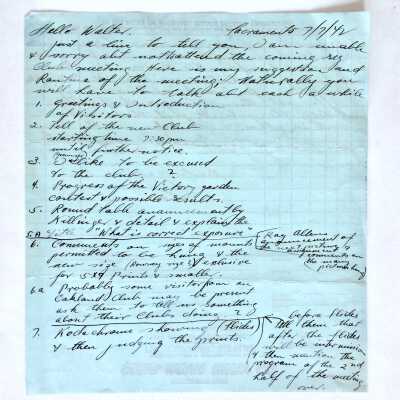 Hello Walter.
Sacramento 7/7/42
Just a line to tell you, I am unable
& sorry also not attend the coming reg
Club meeting. Here is my suggestion and
Routine of the meeting; Naturally you
will have to talk about each a while
1. Greetings & Introduction
of Visitors
2. Tell of the new Club
starting time 7:30 pm
until further notice.
3. I like to be excused
to the club. ?
4. Progress of the Victory garden
contest & possible results.
5. Round table announcement by
Killinger & detail & explain the
5A title "What is correct exposure"
6. Comments on sizes of mounts
permitted to be hung & the
new size exclusive
for 5x7 Prints & smaller.
Ray Allens
announcement of
the next picture &
assignment
comments on
the many
pictures hung
6a Probably some visitor from an
Oakland Club may be present
ask them to tell us something
about their Clubs doing ?
7. Kodachrome showing (Slides)
& then judging the prints.
before slides
tell them that
after the slides
will be intermission
& then mention the
program of the 2nd
half of the meeting
over.